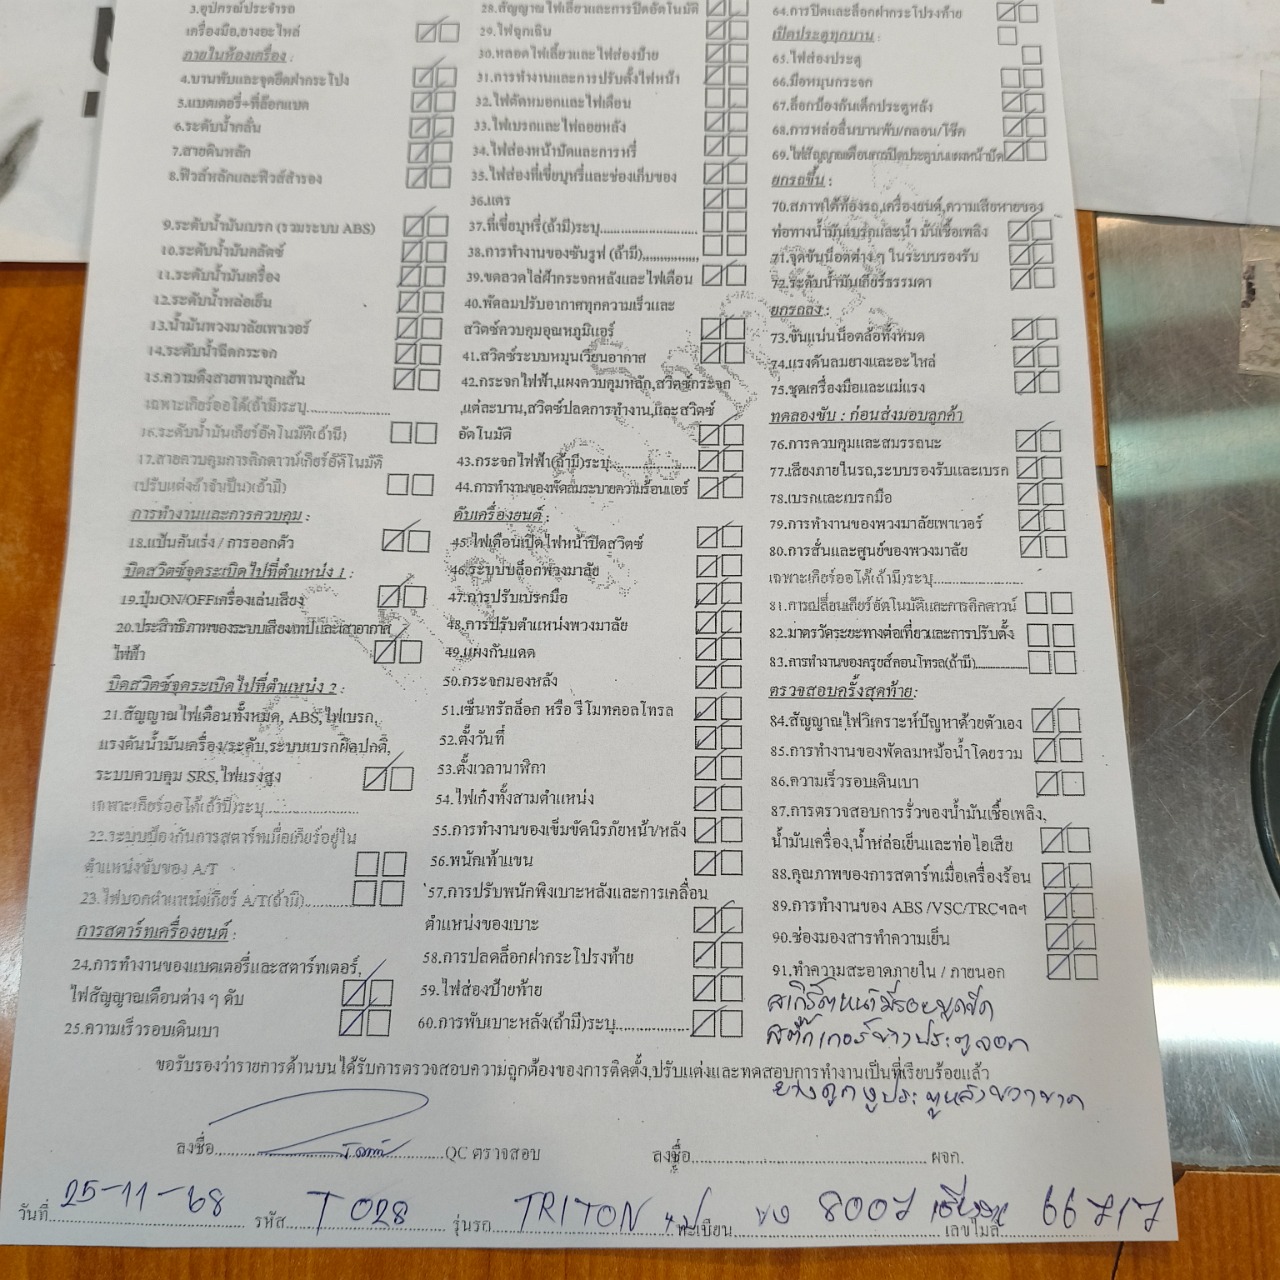 3.อุปกรณ์ประจำรถ
เครื่องมือ,ยางอะไหล่
ภายในห้องเครื่อง :
4.บานพับและจุดยึดฝากระโปง
5.แบตเตอรี่+ที่ล็อกแบต
6.ระดับน้ำกลั่น
7.สายดินหลัก
8.ฟิวส์หลักและฟิวส์สำรอง
9.ระดับน้ำมันเบรก (รวมระบบ ABS)
10.ระดับน้ำมันคลัตช์
11.ระดับน้ำมันเครื่อง
12.ระดับน้ำหล่อเย็น
13.น้ำมันพวงมาลัยเพาเวอร์
14.ระดับน้ำฉีดกระจก
15.ความตึงสายพานทุกเส้น
เฉพาะเกียร์ออโต้(ถ้ามี)ระบุ....................
16.ระดับน้ำมันเกียร์อัตโนมัติ(ถ้ามี)
17.สายควบคุมการคิกดาวน์เกียร์อัตโนมัติ
(ปรับแต่งถ้าจำเป็น)(ถ้ามี)
การทำงานและการควบคุม :
18.แป้นคันเร่ง / การออกตัว
บิดสวิตซ์จุดระเบิดไปที่ตำแหน่ง 1 :
19.ปุ่มON/OFFเครื่องเล่นเสียง
20.ประสิทธิภาพของระบบเสียงเทปและเสาอากาศ
ไฟฟ้า
บิดสวิตซ์จุดระเบิดไปที่ตำแหน่ง 2 :
21.สัญญาณไฟเตือนทั้งหมด, ABS,ไฟเบรก,
แรงดันน้ำมันเครื่อง/ระดับ,ระบบเบรกผิดปกติ,
ระบบควบคุม SRS,ไฟแรงสูง
เฉพาะเกียร์ออโต้(ถ้ามี)ระบุ....................
22.ระบบป้องกันการสตาร์ทเมื่อเกียร์อยู่ใน
ตำแหน่งขับของ A/T
23.ไฟบอกตำแหน่งเกียร์ A/T(ถ้ามี)........
การสตาร์ทเครื่องยนต์ :
24.การทำงานของแบตเตอรี่และสตาร์ทเตอร์,
ไฟสัญญาณเตือนต่าง ๆ ดับ
25.ความเร็วรอบเดินเบา
28.สัญญาณไฟเลี้ยวและการปิดอัตโนมัติ
29.ไฟฉุกเฉิน
30.หลอดไฟเลี้ยวและไฟส่องป้าย
31.การทำงานและการปรับตั้งไฟหน้า
32.ไฟตัดหมอกและไฟเตือน
33.ไฟเบรกและไฟถอยหลัง
34.ไฟส่องหน้าปัดและการหรี่
35.ไฟส่องที่เขี่ยบุหรี่และช่องเก็บของ
36.แตร
37.ที่เขี่ยบุหรี่(ถ้ามี)ระบุ....................
38.การทำงานของซันรูฟ (ถ้ามี)............
39.ขดลวดไล่ฝ้ากระจกหลังและไฟเตือน
40.พัดลมปรับอากาศทุกความเร็วและ
สวิตซ์ควบคุมอุณหภูมิแอร์
41.สวิตซ์ระบบหมุนเวียนอากาศ
42.กระจกไฟฟ้า,แผงควบคุมหลัก,สวิตซ์กระจก
,แต่ละบาน,สวิตซ์ปลดการทำงาน,และสวิตซ์
อัตโนมัติ
43.กระจกไฟฟ้า(ถ้ามี)ระบุ....................
44.การทำงานของพัดลมระบายความร้อนแอร์
ดับเครื่องยนต์ :
45.ไฟเตือนเปิดไฟหน้าปิดสวิตซ์
46.ระบบบล็อกพวงมาลัย
47.การปรับเบรกมือ
48.การปรับตำแหน่งพวงมาลัย
49.แผงกันแดด
50.กระจกมองหลัง
51.เซ็นทรัลล็อก หรือ รีโมทคอลโทรล
52.ตั้งวันที่
53.ตั้งเวลานาฬิกา
54.ไฟเก๋งทั้งสามตำแหน่ง
55.การทำงานของเข็มขัดนิรภัยหน้า/หลัง
56.พนักเท้าแขน
57.การปรับพนักพิงเบาะหลังและการเคลื่อน
ตำแหน่งของเบาะ
58.การปลดล็อกฝากระโปรงท้าย
59.ไฟส่องป้ายท้าย
60.การพับเบาะหลัง(ถ้ามี)ระบุ................
64.การปิดและล็อกฝากระโปรงท้าย
เปิดประตูทุกบาน :
65.ไฟส่องประตู
66.มือหมุนกระจก
67.ล็อกป้องกันเด็กประตูหลัง
68.การหล่อลื่นบานพับ/กลอน/โช๊ค
69.ไฟสัญญาณเตือนการปิดประตูบนแผงหน้าปัด
ยกรถขึ้น :
70.สภาพใต้ท้องรถ,เครื่องยนต์,ความเสียหายของ
ท่อทางน้ำมันเบรกและน้ำมันเชื้อเพลิง
71.จุดขันน็อตต่าง ๆ ในระบบรองรับ
72.ระดับน้ำมันเกียร์ธรรมดา
ยกรถลง :
73.ขันแน่นน็อตล้อทั้งหมด
74.แรงดันลมยางและอะไหล่
75.ชุดเครื่องมือและแม่แรง
ทดลองขับ : ก่อนส่งมอบลูกค้า
76.การควบคุมและสมรรถนะ
77.เสียงภายในรถ,ระบบรองรับและเบรก
78.เบรกและเบรกมือ
79.การทำงานของพวงมาลัยเพาเวอร์
80.การสั่นและศูนย์ของพวงมาลัย
เฉพาะเกียร์ออโต้(ถ้ามี)ระบุ....................
81.การเปลี่ยนเกียร์อัตโนมัติและการคิกดาวน์
82.มาตรวัดระยะทางต่อเที่ยวและการปรับตั้ง
83.การทำงานของครูยส์คอนโทรล(ถ้ามี)................
ตรวจสอบครั้งสุดท้าย:
84.สัญญาณไฟวิเคราะห์ปัญหาด้วยตัวเอง
85.การทำงานของพัดลมหม้อน้ำโดยรวม
86.ความเร็วรอบเดินเบา
87.การตรวจสอบการรั่วของน้ำมันเชื้อเพลิง,
น้ำมันเครื่อง,น้ำหล่อเย็นและท่อไอเสีย
88.คุณภาพของการสตาร์ทเมื่อเครื่องร้อน
89.การทำงานของ ABS /VSC/TRCฯลฯ
90.ช่องมองสารทำความเย็น
91.ทำความสะอาดภายใน / ภายนอก
สเกิร์ตหน้ามีรอยขูดขีด
สติ๊กเกอร์ข้างประตูลอก
ขอรับรองว่ารายการด้านบนได้รับการตรวจสอบความถูกต้องของการติดตั้ง,ปรับแต่งและทดสอบการทำงานเป็นที่เรียบร้อยแล้ว
ยางดูกงูประตูหลังขวาขาด
ลงชื่อ....................QC ตรวจสอบ ลงชื่อ....................ผจก.
วันที่ 25-11-68 รหัส T 028 รุ่นรถ TRITON ทะเบียน 8007 เลขไมล์ 66717